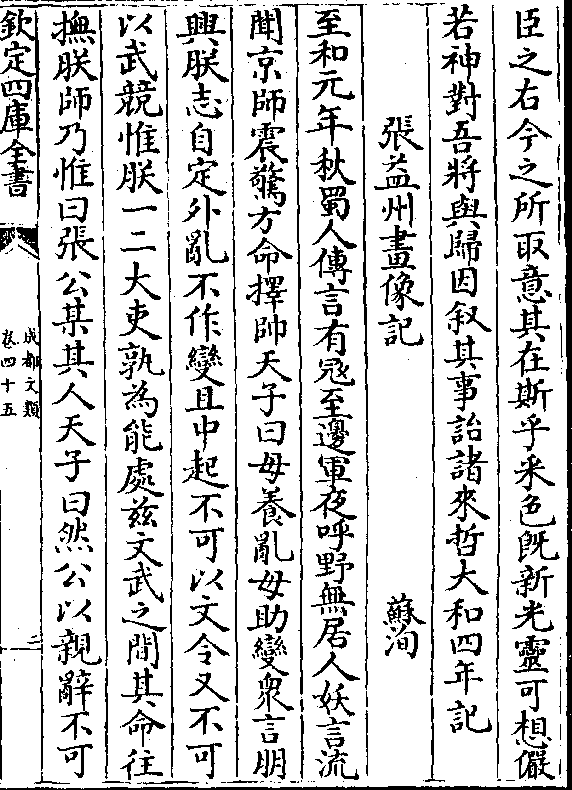 臣之右今之所取意其在斯乎采色旣新光靈可想儼
若神對吾將與歸因叙其事詒諸來哲大和四年記
張益州畫像記　蘇洵
至和元年秋蜀人傳言有冦至邊軍夜呼野無居人妖言流
聞京師震驚方命擇帥天子曰毋養亂毋助變衆言朋
興朕志自定外亂不作變且中起不可以文令又不可
以武競惟朕一二大吏孰為能處兹文武之間其命往
撫朕師乃惟曰張公某其人天子曰然公以親辭不可
欽定四庫全書
成都文類
卷四十五
二